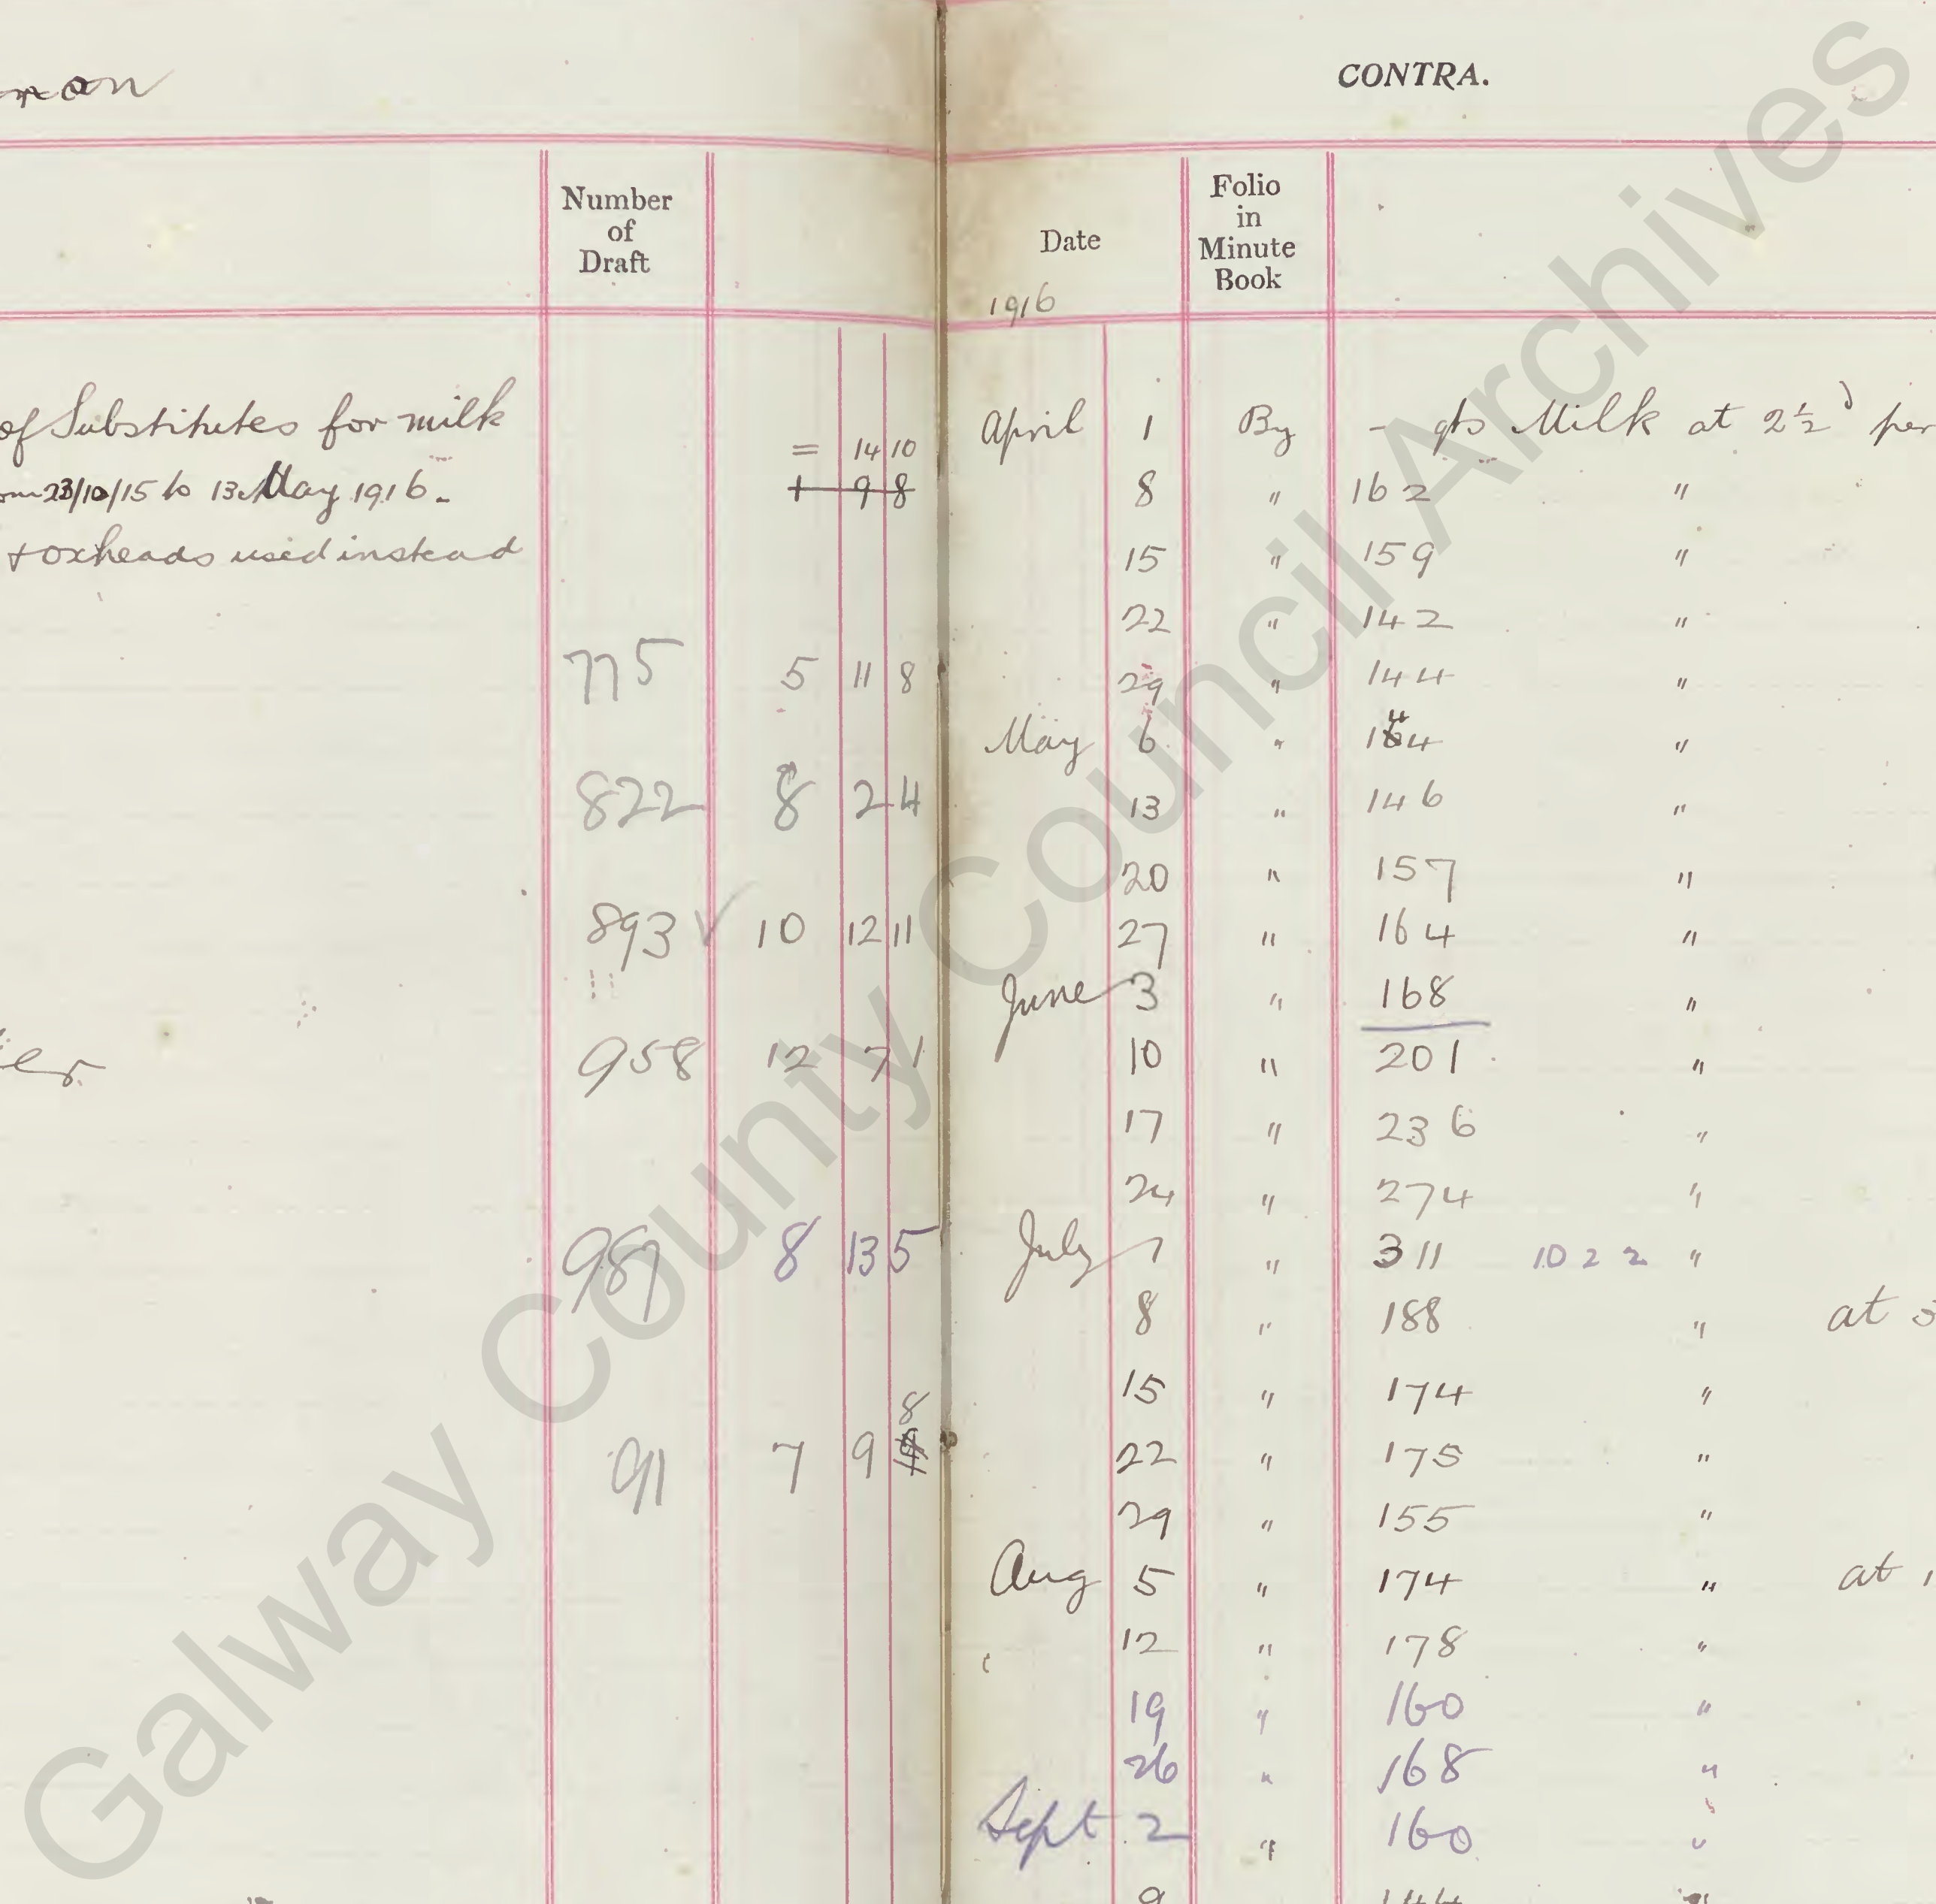 CONTRA.
Number
of
Draft
Date
1916
Folio
in
Minute
Book
of Substitutes for milk = 14 10
23/10/15 to 13 May 1916. 1 9 8
+ oxheads used instead
775 5 11 8
822 8 2 4
893 ✓ 10 12 11
958 12 7 1
987 8 13 5
8
91 7 9
April 1 By - qts Milk at 2½d per
8 " 162 "
15 " 159 "
22 " 142 "
29 " 144 "
May 6 " 144 "
13 " 146 "
20 " 157 "
27 " 164 "
June 3 " 168 "
10 " 201 "
17 " 236 "
24 " 274 "
July 1 " 311 1022 "
8 " 188 " at 3
15 " 174 "
22 " 175 "
29 " 155 "
Aug 5 " 174 " at 1
12 " 178 "
19 " 160 "
26 " 168 "
Sept 2 " 160 "
9
Galway County Council Archives